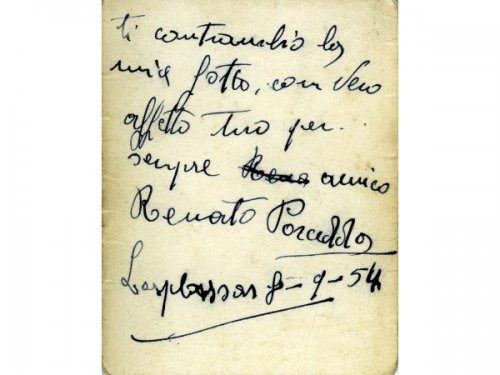 ti contrambio la
mia fotto, con vero
affetto tuo per
sempre amico
Renato Porceddu
Lasplassas 8-9-54